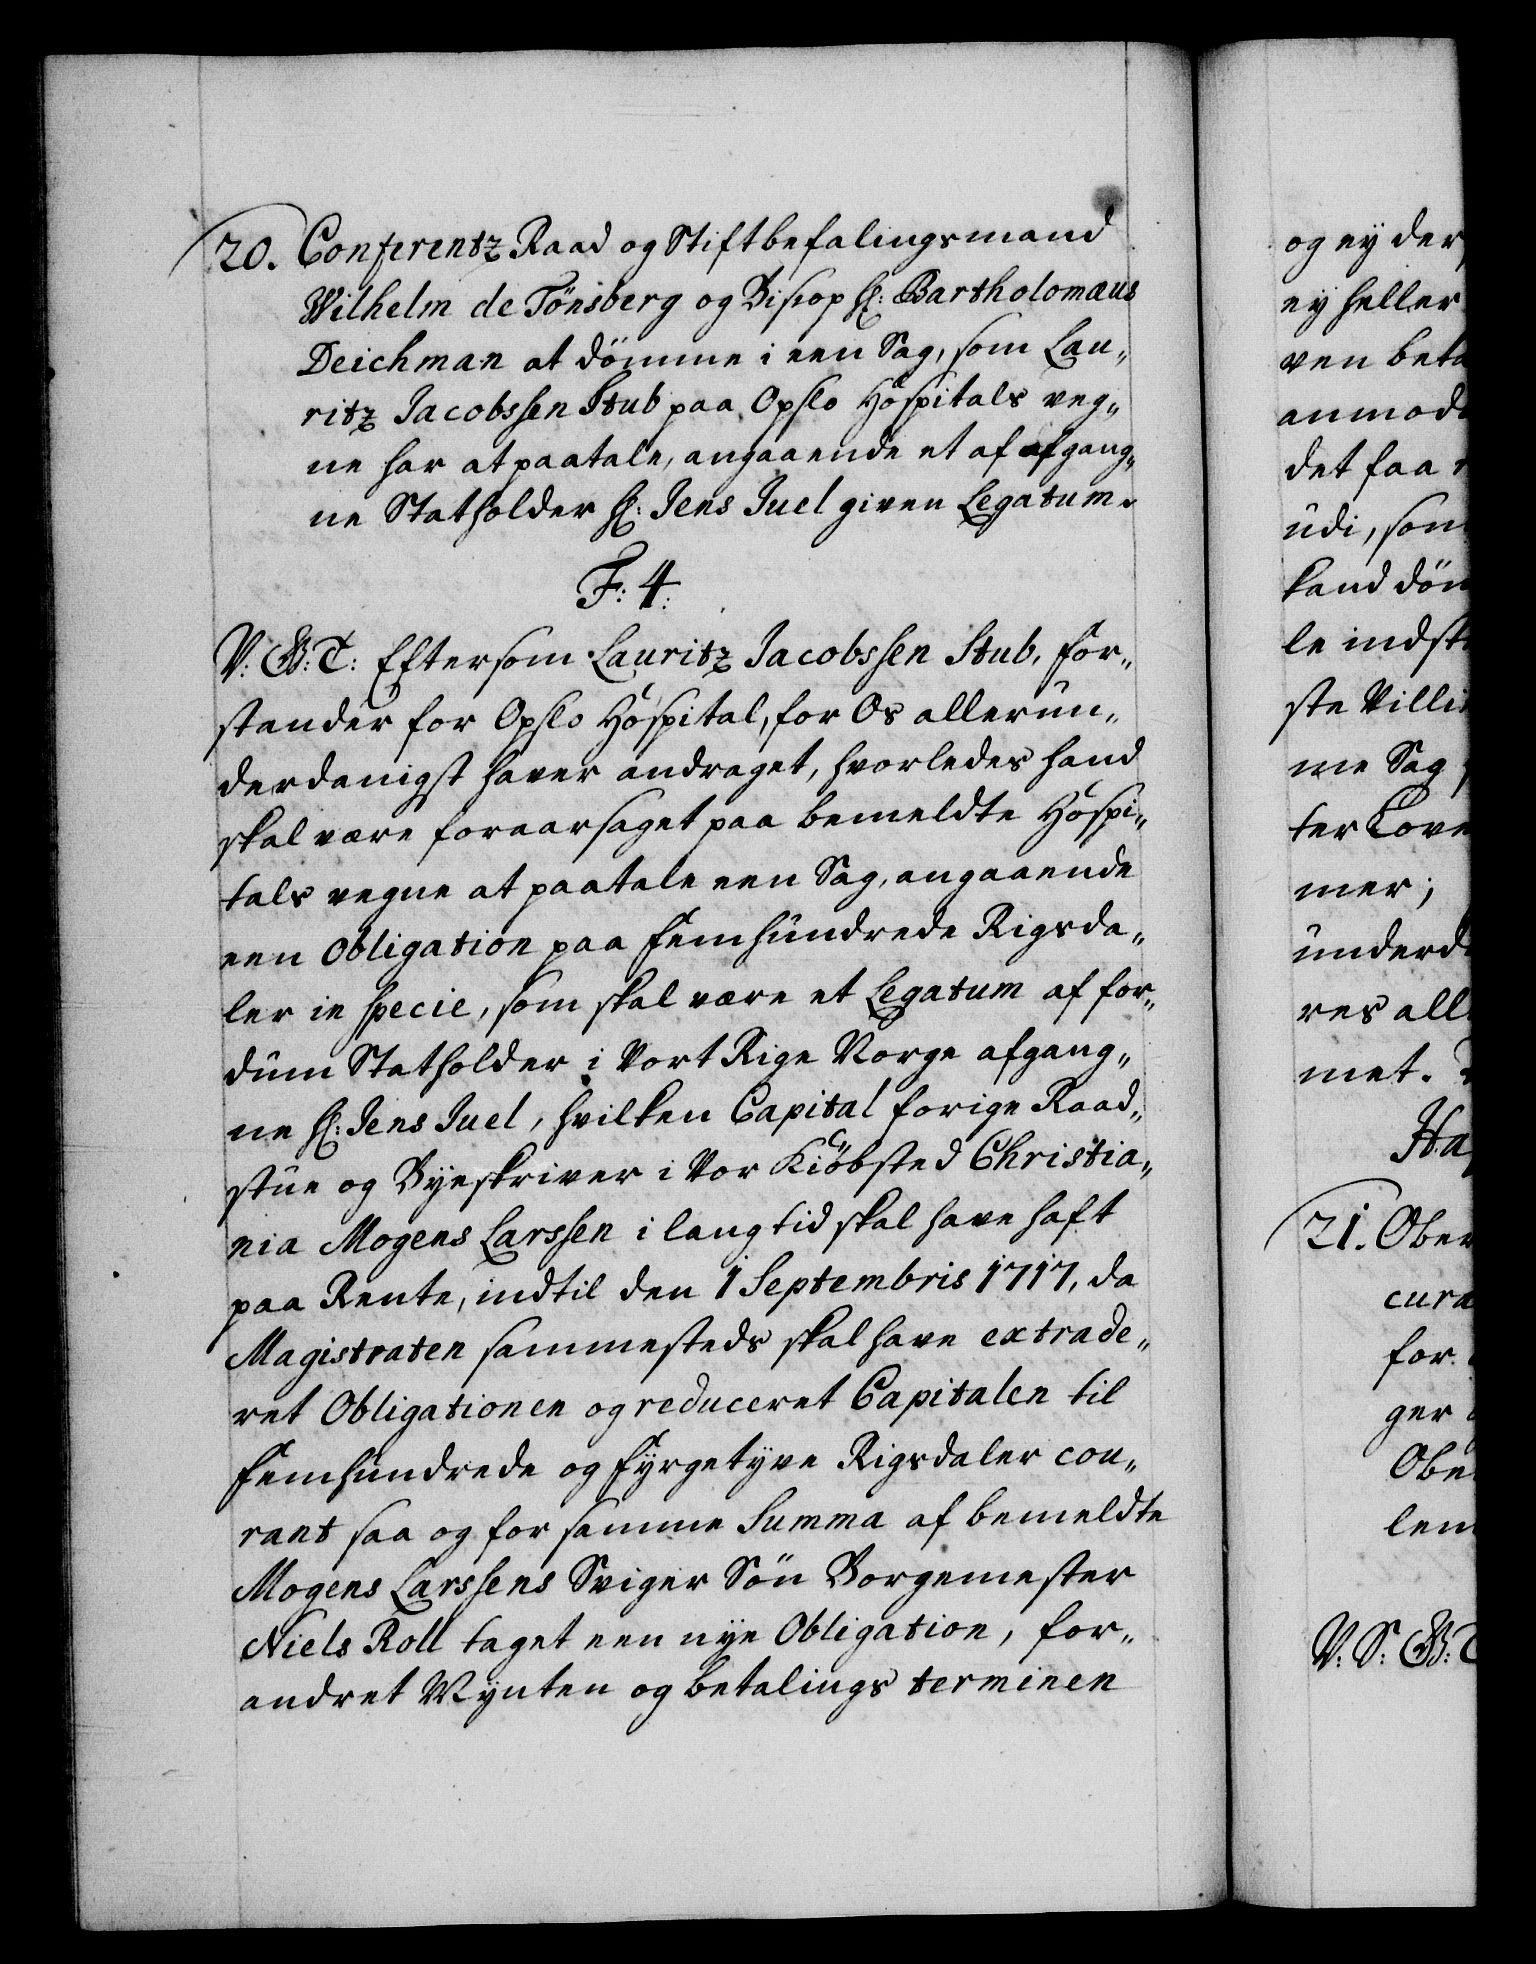 20. Conferentz Raad og Stiftbefalingsmand
Wilhelm de Tönsberg og Biscop H: Bartholomæus
Deichman at dömme i een Sag, som Lau„
ritz Jacobssen Stub paa Opslo Hospitals veg„
ne har at paatale, angaaende et af afgang„
ne Statholder H: Jens Juel given Legatum.
F: 4.
V: G: T: Eftersom Lauritz Jacobssen Stub, for„
stander for Opslo Hospital, for Os allerun„
derdanigst haver andraget, hvorledes hand
skal være foraarsaget paa bemeldte Hospi„
tals vegne at paatale een Sag, angaaende
een Obligation paa femhundrede Rigsda„
ler in specie, som skal være et Legatum af for„
dum Statholder i Vort Rige Norge afgang„
ne H: Jens Juel, hvilken Capital forige Raad„
stue og Byeskriver i Vor Kiöbsted Christia„
nia Mogens Larssen i lang tid skal have haft
paa Rente, indtil den 1 Septembris 1717, da
Magistraten sammesteds skal have extrade„
ret Obligationen og reduceret Capitalen til
femhundrede og fyrgetyve Rigsdaler cou„
rant saa og for samme Summa af bemeldte
Mogens Larssens Sviger Sön Borgemester
Niels Roll taget een nye Obligation, for„
andret Mynten og betalings terminen
og ey der
ey heller
ven beta
anmod
det faa
udi, som
kand döm
le indst
ste Villi
me Sag
ter Love
mer;
underd
res all
met.
Ha
21. Ober
cura
for
ger
Obe
lem
V: S: G: T